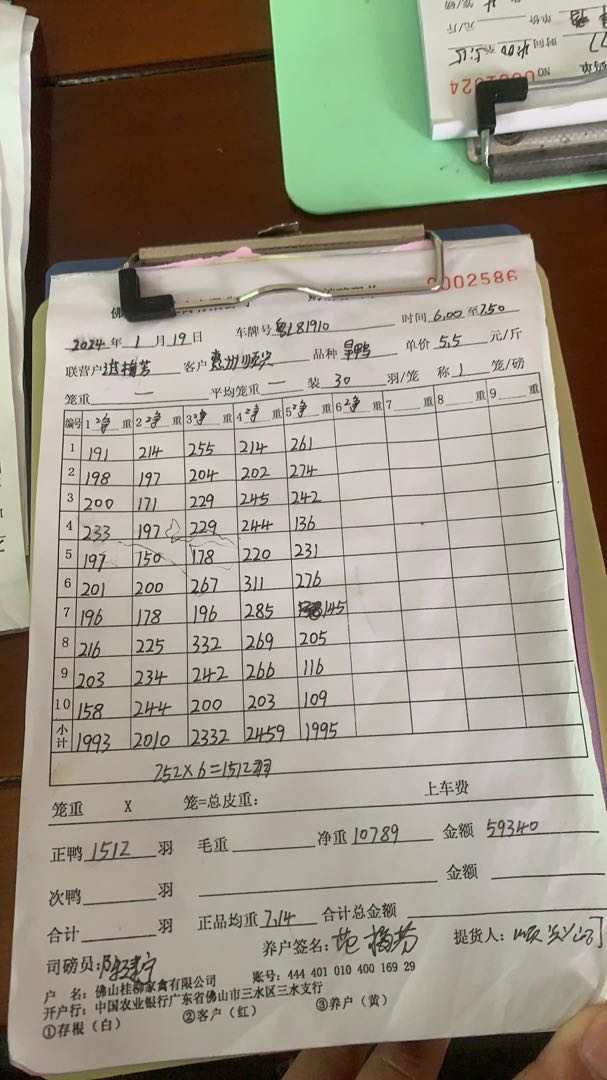 NO 0001024
元/斤
佛
0002586
2024 年 1 月 19 日 车牌号 粤L81910 时间 6.00 至 7.50
联营户 范梅芳 客户 惠州顺兴 品种 旱鸭 单价 5.5 元/斤
笼重 一 平均笼重 一 装 30 羽/笼 称 1 笼/磅
编号 1 净 重 2 净 重 3 净 重 4 净 重 5 净 重 6 净 重 7 重 8 重 9 重
1 191 214 255 214 261
2 198 197 204 202 274
3 200 171 229 245 242
4 233 197 229 244 136
5 197 150 178 220 231
6 201 200 267 311 276
7 196 178 196 285 145
8 216 225 332 269 205
9 203 234 242 266 116
10 158 244 200 203 109
小计 1993 2010 2332 2459 1995
252×6=1512羽
笼重 X 笼=总皮重: 上车费
正鸭 1512 羽 毛重 净重 10789 金额 59340
次鸭 羽 金额
合计 羽 正品均重 7.14 合计总金额
司磅员: 养户签名: 范梅芳 提货人:
户 名: 佛山桂柳家禽有限公司 账号: 444 401 010 400 169 29
开户行: 中国农业银行广东省佛山市三水区三水支行
①存根（白） ②客户（红） ③养户（黄）